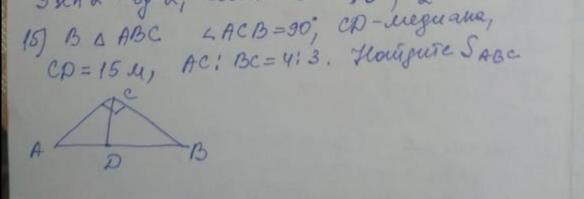 15) В △ ABC ∠ACB = 90°, CD - медиана,
CD = 15 м, AC : BC = 4 : 3. Найдите S ABC
C
A
B
D